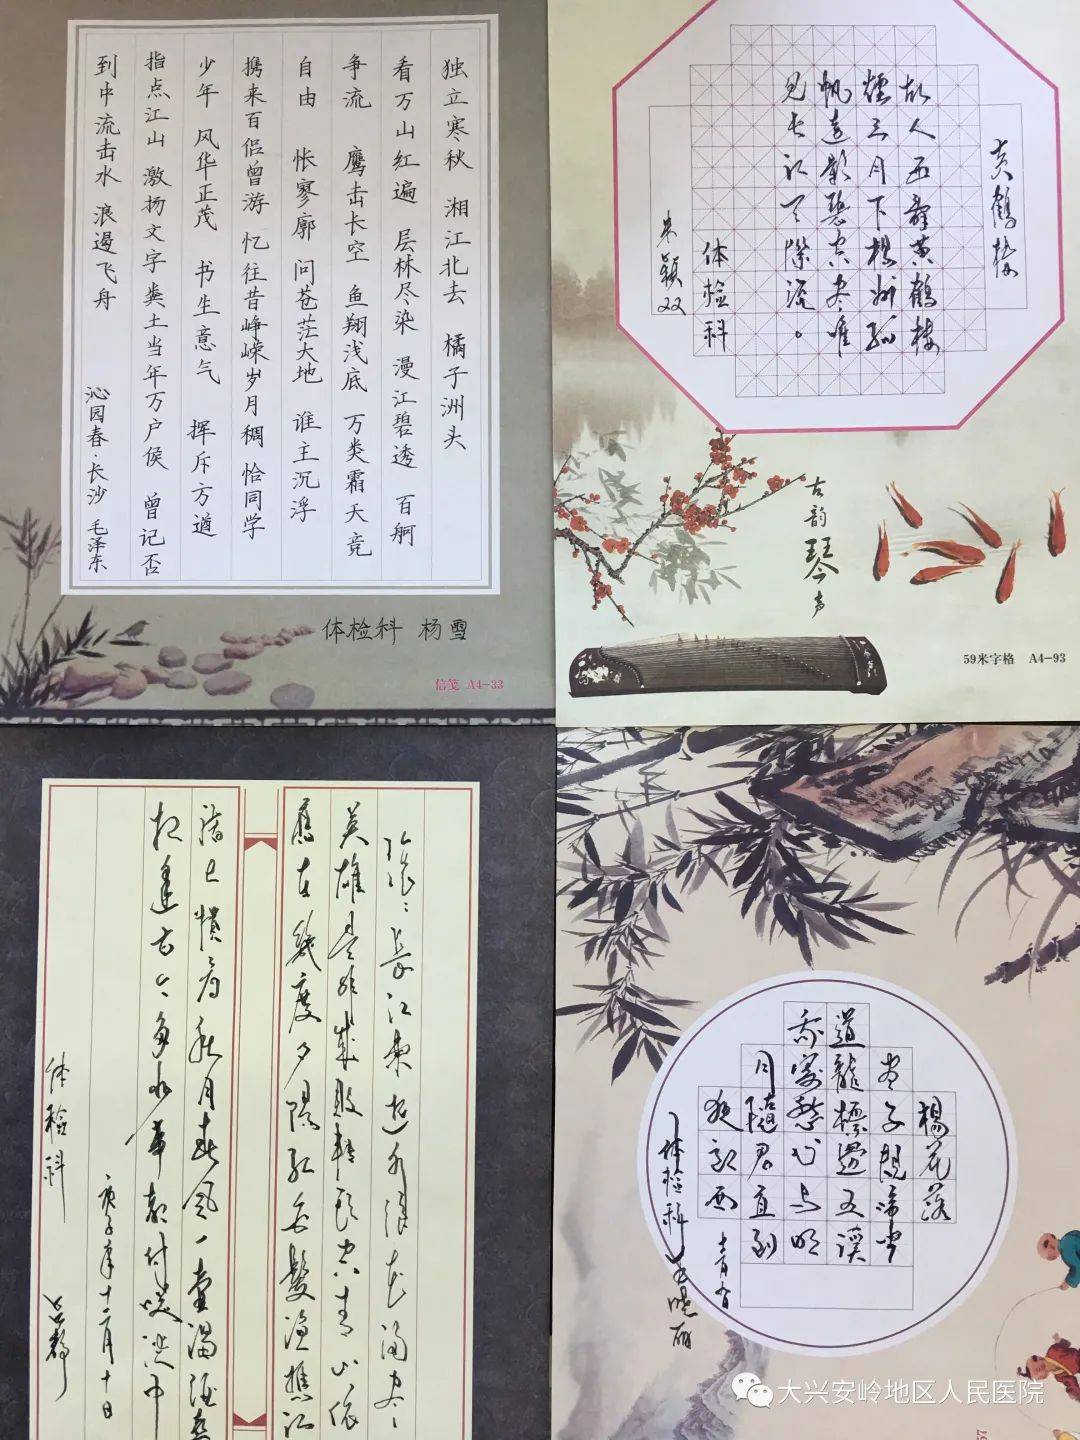 独立寒秋 湘江北去 橘子洲头
看万山红遍 层林尽染 漫江碧透 百舸
争流 鹰击长空 鱼翔浅底 万类霜天竞
自由 怅寥廓 问苍茫大地 谁主沉浮
携来百侣曾游 忆往昔峥嵘岁月稠 恰同学
少年 风华正茂 书生意气 挥斥方遒
指点江山 激扬文字 粪土当年万户侯 曾记否
到中流击水 浪遏飞舟 沁园春·长沙 毛泽东
体检科 杨雪
信笺 A4-33
黄鹤楼
故人西辞黄鹤楼
煙三月下揚州孤
帆遠影碧空尽唯
见长江天際流。
体检科
朱颖双
古韵琴声
59米字格 A4-93
滚滚长江東逝水浪花淘尽
英雄是非成败转头空青山依
舊在幾度夕陽红白髮渔樵江
渚上惯看秋月春风一壶濁酒喜
相逢古今多少事都付笑谈中
庚子年十二月十日
体检科
楊花落
尽子規啼
道龍標過五溪
我寄愁心与明
月隨君直到
夜郎西
体检科
大兴安岭地区人民医院